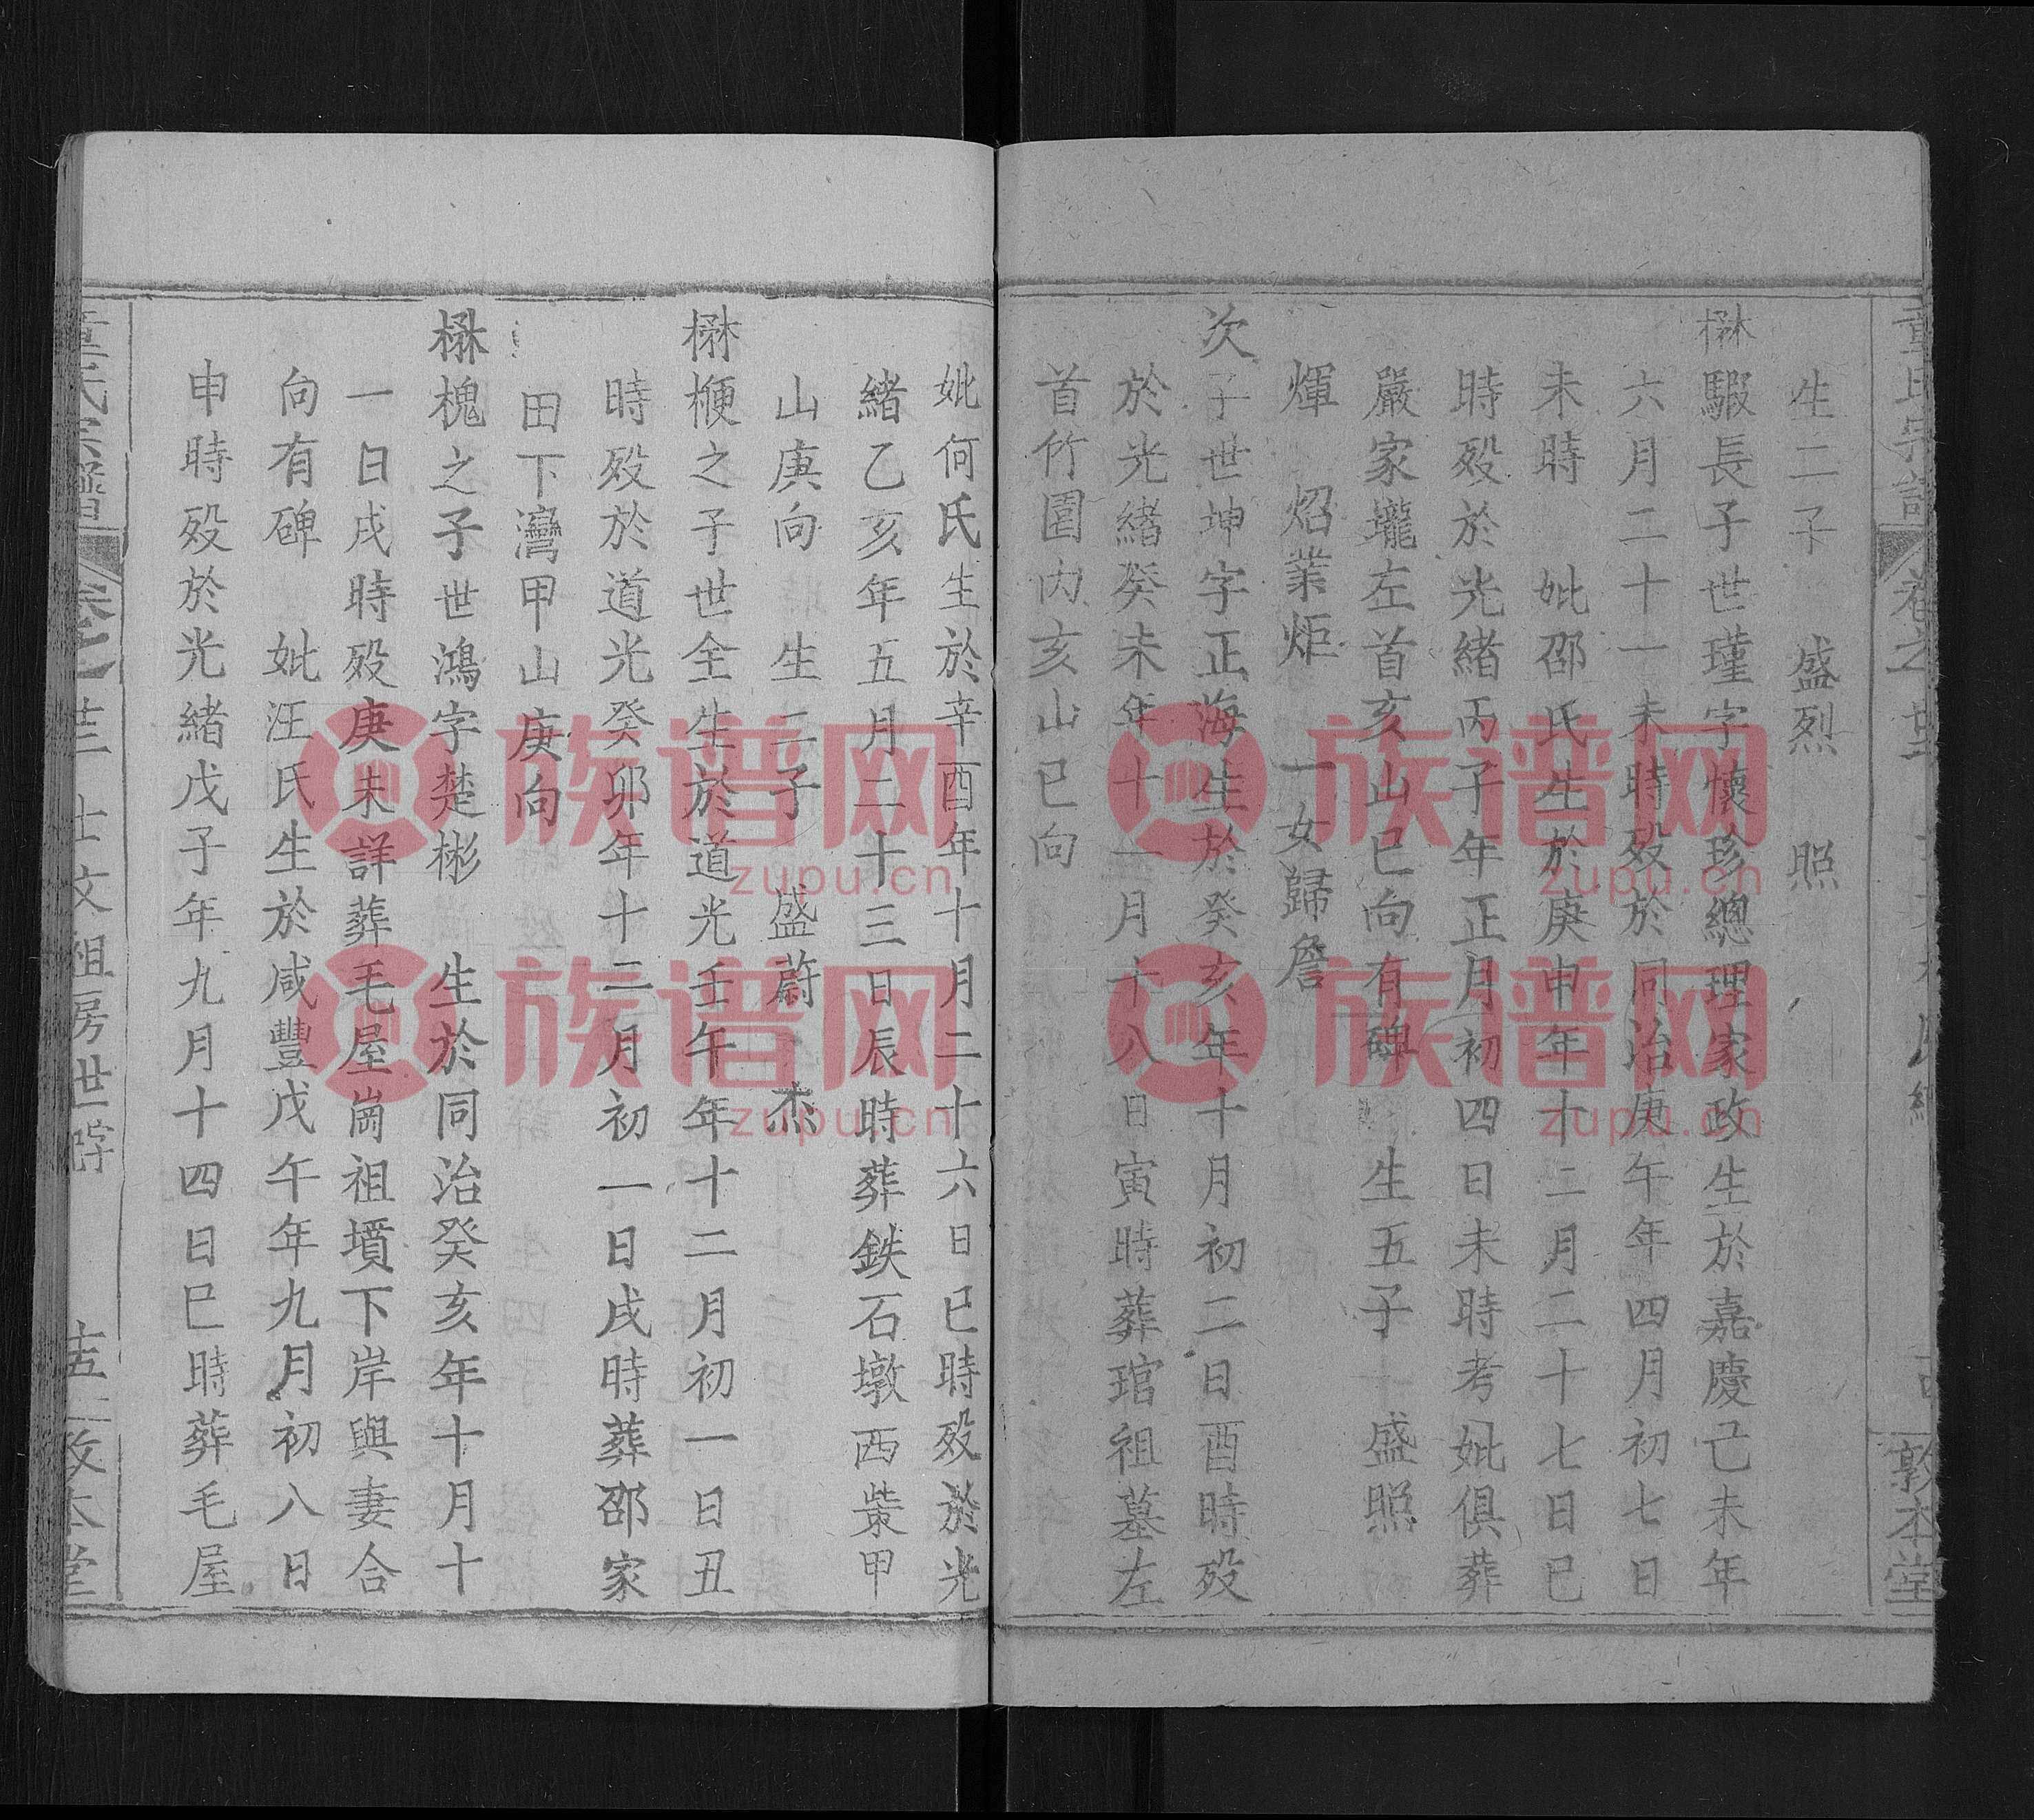 童氏宗譜 卷之 敦本堂
生二子 盛烈 照
楙騢長子世瑾字懷珍總理家政生於嘉慶己未年
六月二十一未時歿於同治庚午年四月初七日
未時 妣邵氏生於庚申年十二月二十七日巳
時歿於光緒丙子年正月初四日未時考妣俱葬
嚴家壠左首亥山巳向有碑 生五子 盛照
煇 炤業炬 一女歸詹
次子世坤字正海生於癸亥年十月初二日酉時歿
於光緒癸未年十一月十八日寅時葬琯祖墓左
首竹園内亥山巳向
妣何氏生於辛酉年十月二十六日巳時歿於光
緒乙亥年五月二十三日辰時葬鉄石墩西柴甲
山庚向 生二子 盛蔚 杰
楙楩之子世全生於道光壬午年十二月初一日丑
時歿於道光癸卯年十二月初一日戌時葬邵家
田下灣甲山庚向
楙槐之子世鴻字楚彬 生於同治癸亥年十月十
一日戌時歿庚未詳葬毛屋崗祖墳下岸與妻合
向有碑 妣汪氏生於咸豐戊午年九月初八日
申時歿於光緒戊子年九月十四日巳時葬毛屋
童氏宗譜 卷之 士文祖房世 敦本堂
族谱网
zupu.cn
族谱网
zupu.cn
族谱网
zupu.cn
族谱网
zupu.cn